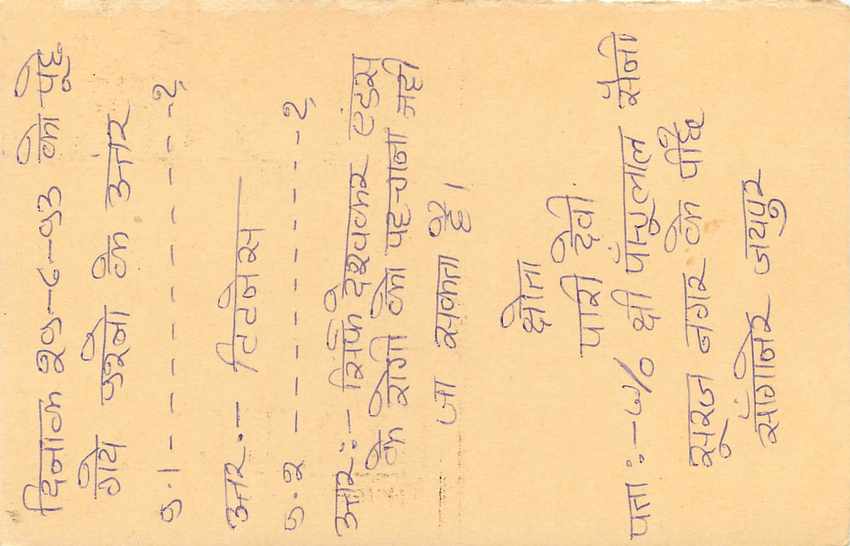 दिनाक २७-८-९३ को पूछे
गये प्रश्नो के उत्तर
प्र.1 - - - - - - - - - ?
उत्तर:- टिटनेस
प्र.२ - - - - - - - - - ?
उत्तर:- सिर्फ देखकर एड्स
के रोगी को पहचाना नही
जा सकता है।
श्रोता
पारी देवी
पता:- w/o श्री पाँचुलाल सैनी
सूरज नगर के पीछे
सांगानेर जयपुर